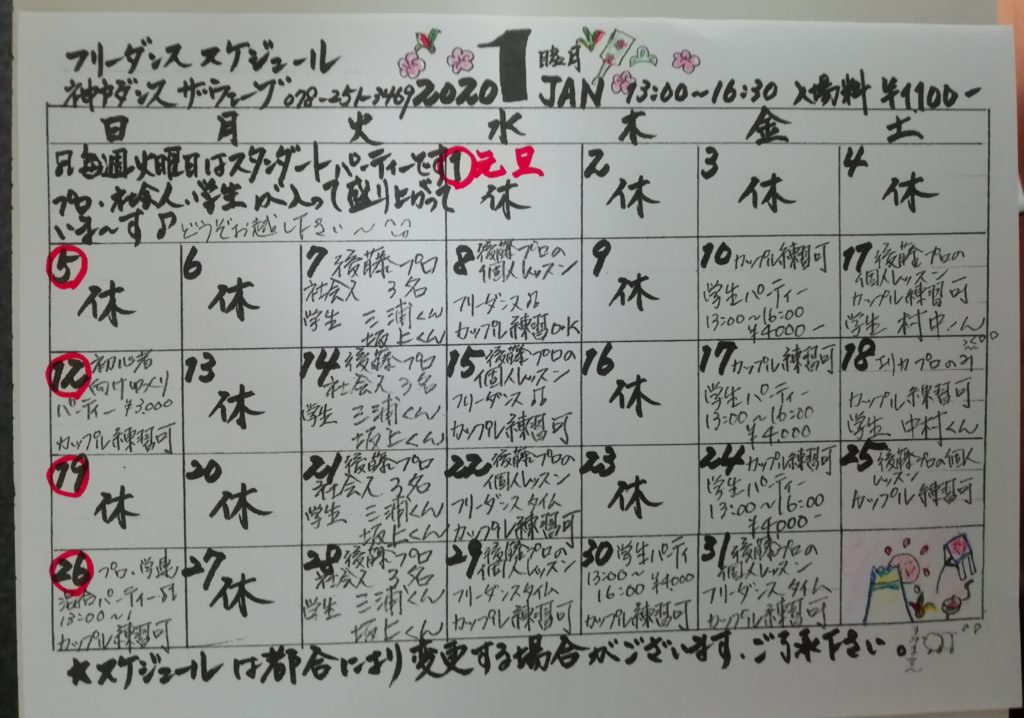 フリーダンス スケジュール
神戸ダンス ザウェーブ 078-251-3469 2020 1 睦月 JAN 13:00〜16:30 入場料 ¥1100-
日 月 火 水 木 金 土
毎週火曜日はスタンダートパーティーです
プロ、社会人、学生が入って盛り上がって
いま〜す♪どうぞお越し下さい〜
1 元旦
休
2
休
3
休
4
休
5
休
6
休
7 後藤プロ
社会人 3名
学生 三浦くん
坂上くん
8 後藤プロの
個人レッスン
フリーダンス
カップル練習OK
9
休
10 カップル練習可
学生パーティー
13:00〜16:00
¥4000-
11 後藤プロの
個人レッスン
カップル練習可
学生 村中くん
12 初心者
向け
パーティー ¥3000
カップル練習可
13
休
14 後藤プロ
社会人3名
学生 三浦くん
坂上くん
15 後藤プロの
個人レッスン
フリーダンス
カップル練習可
16
休
17 カップル練習可
学生パーティー
13:00〜16:00
¥4000
18 エリカプロの
カップル練習可
学生 中村くん
19
休
20
休
21 後藤プロ
社会人3名
学生 三浦くん
坂上くん
22 後藤プロの
個人レッスン
フリーダンスタイム
カップル練習可
23
休
24 カップル練習可
学生パーティー
13:00〜16:00
¥4000-
25 後藤プロの個人
レッスン
カップル練習可
26 プロ、学連
混合パーティー
13:00〜
カップル練習可
27
休
28 後藤プロ
社会人3名
学生 三浦くん
坂上くん
29 後藤プロの
個人レッスン
フリーダンスタイム
カップル練習可
30 学生パーティ
13:00〜
16:00 ¥4000
カップル練習可
31 後藤プロの
個人レッスン
フリーダンスタイム
カップル練習可
★スケジュールは都合により変更する場合がございます、ご了承下さい。